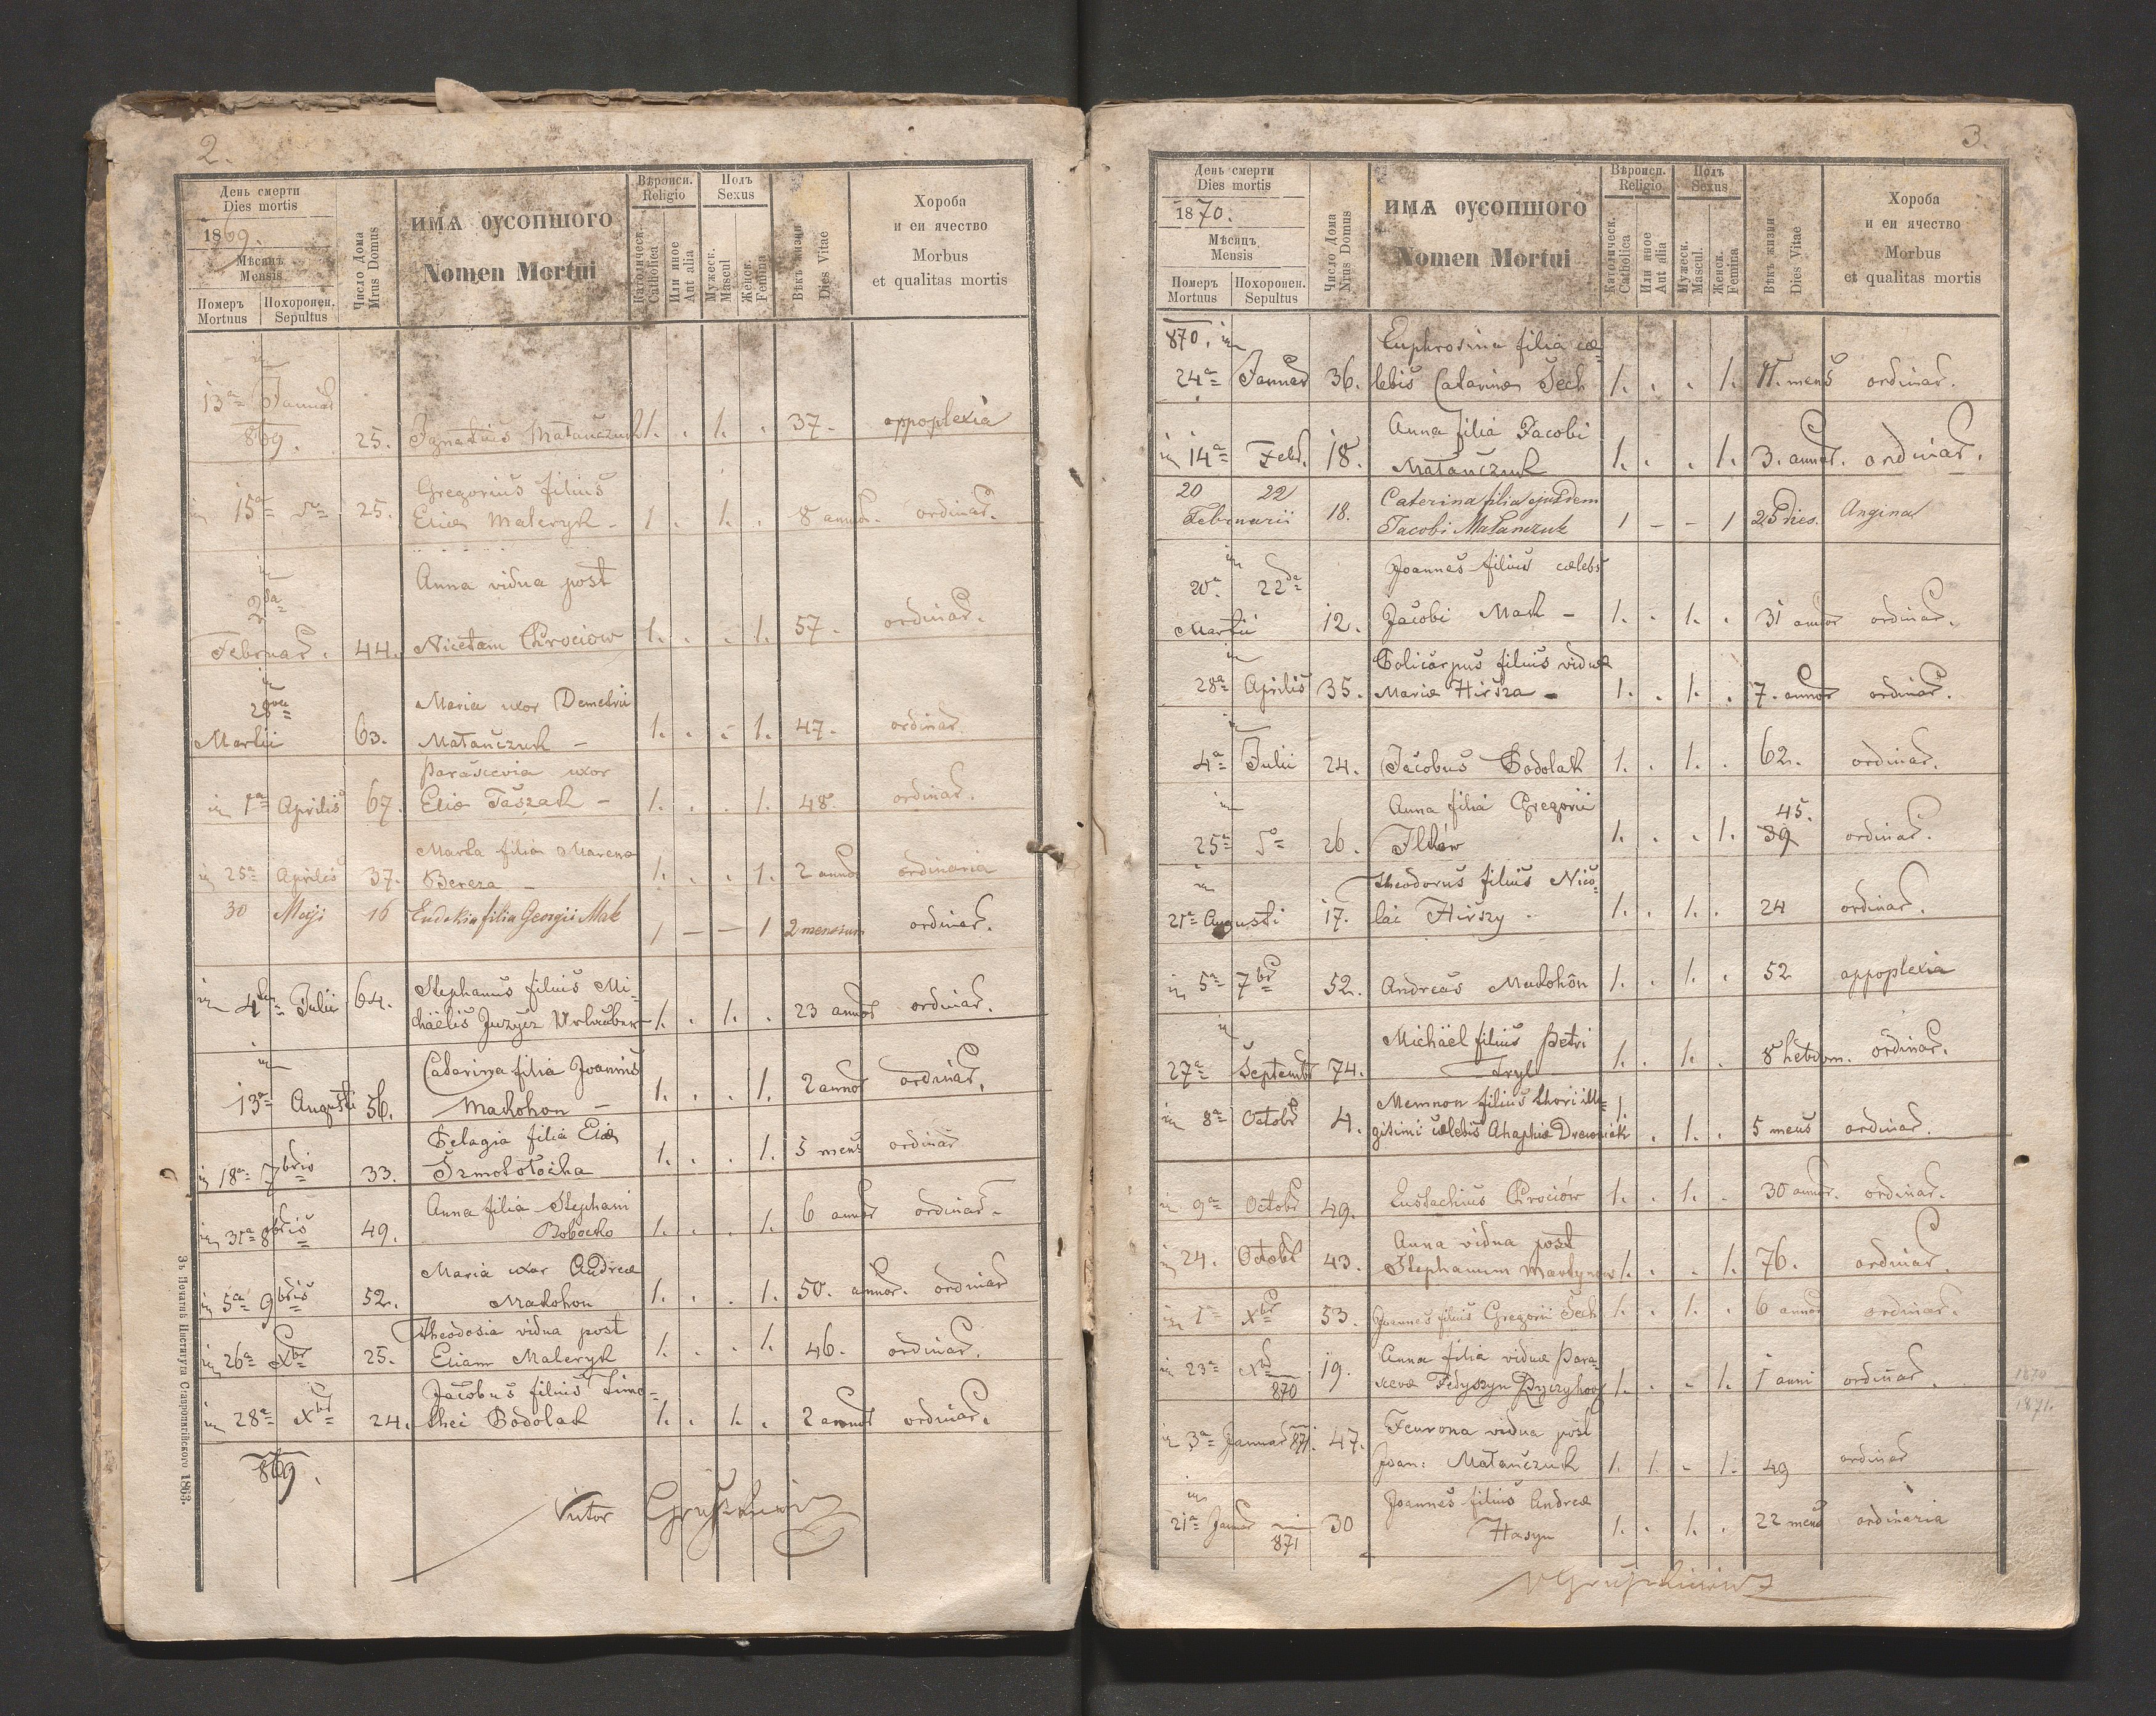 2.
День смерти
Dies mortis
1869.
Мѣсяцъ
Mensis
Померъ
Mortuus
Похоронен.
Sepultus
Число Дома
Nrus Domus
ИМѦ ОУСОПШОГО
Nomen Mortui
Вѣроисп.
Religio
Католическ.
Catholica
Или иное
Aut alia
Полъ
Sexus
Мужеск.
Mascul
Женск.
Femina
Вѣкъ жизни
Dies Vitae
Хороба
и еи ячество
Morbus
et qualitas mortis
in
13a Januar
869. 25. Ignatius Matańczuk 1. . 1. . 37. appoplexia
Gregorius filius
in 15a do 25. Eliae Maleryk 1 . 1. . 8 annor. ordinar.
in
2da
Anna vidua post
Februar. 44. Nicetam Chrociow 1. . . 1. 57. ordinar.
in
Maria uxor Demetrii
Martii 63. Matańczuk 1. . . 1. 47. ordinar.
Parascevia uxor
in 1a Aprilis 67. Eliae Taszak 1. . . 1. 48. ordinar.
Marta filia Marenae
in 25a Aprilis 37. Bereza 1. . . 1. 2 annor ordinaria
30 Maji 16 Eudokia filia Georgii Mak 1 – – 1 2 mensium ordinar.
in 4ta Julii 64. Stephanus filius Mi-
chaelis Juzycz 1. . 1. . 23 annor ordinar.
in
Catarina filia Joannis
13a Augusti 56. Makohon 1. . . 1. 2 annor ordinar.
Pelagia filia Eliae
in 18a 7bris 33. Szmołotocha 1. . . 1. 5 mens ordinar
Anna filia Stephani
in 31a 8bris 49. Bobocko 1. . . 1. 6 annor ordinar.
Maria uxor Andreae
in 5a 9bris 52. Makohon 1. . . 1. 50. annor. ordinar
Theodosia vidua post
in 26a Xbr 25. Eliam Maleryk 1. . . 1. 46. ordinar.
Jacobus filius Timo-
in 28a Xbr 24. thei Podolak 1. . 1. . 2 annor ordinar.
869.
Victor Gruszkiewicz
Зъ Печатнѣ Института Ставропигійского 1863.
3.
День смерти
Dies mortis
1870.
Мѣсяцъ
Mensis
Померъ
Mortuus
Похоронен.
Sepultus
Число Дома
Nrus Domus
ИМѦ ОУСОПШОГО
Nomen Mortui
Вѣроисп.
Religio
Католическ.
Catholica
Или иное
Aut alia
Полъ
Sexus
Мужеск.
Mascul.
Женск.
Femina
Вѣкъ жизни
Dies Vitae
Хороба
и еи ячество
Morbus
et qualitas mortis
870. in
Euphrosina filia cae-
24a Januar 36. lebis Catarinae Sech 1. . . 1. 11. mens ordinar.
Anna filia Jacobi
in 14a Febr. 18. Matańczuk 1. . . 1. 3. annor. ordinar.
20 22
Februarii 18. Caterina filia ejusdem
Jacobi Matanczuk 1 – – 1 25 dies. Angina
in
20a 22da Joannes filius caelebs
Martii 12. Jacobi Mak 1. . 1. . 31 annor ordinar.
in
Policarpus filius viduae
28a Aprilis 35. Mariae Hirsza 1. . 1. . 7. annor ordinar.
in
4a Julii 24. Jacobus Podolak 1. . 1. . 62. ordinar.
in
Anna filia Gregorii
45.
25a do 26. Ilków 1. . . 1. 39 ordinar.
in
Theodorus filius Nico-
21a Augusti 17. lai Hirszy 1. . 1. . 24 ordinar.
in 5a 7br 52. Andreas Makohon 1. . 1. . 52 appoplexia
in
Michael filius Petri
27a Septembr 74. Tryl 1. . 1. . 8 hebdom. ordinar.
Memnon filius thori ille-
in 8a Octobr 4. gitimi caelebis Ahaphiae Drewniak 1. . 1. . 5 mens ordinar.
in 9a Octobr 49. Eustachius Chrociów 1. . 1. . 30 annor. ordinar.
Anna vidua post
in 24. Octobr 43. Stephanum Martynow 1. . . 1. 76. ordinar.
in 1a Xbr 53. Joannes filius Gregorii Sech 1. . 1. . 6 annor ordinar.
Anna filia viduae Para-
in 23a Xbr
870 19. scevae Fedyszyn 1. . . 1. 1 anni ordinar.
1870
1871.
Feurona vidua post
in 3a Januar 871. 47. Joan: Matańczuk 1. 1. . 1. 49 ordinar
in
Joannes filius Andreae
21a Januar 871 30 Hasyn 1. . 1. . 22 mens ordinaria
V Gruszkiewicz